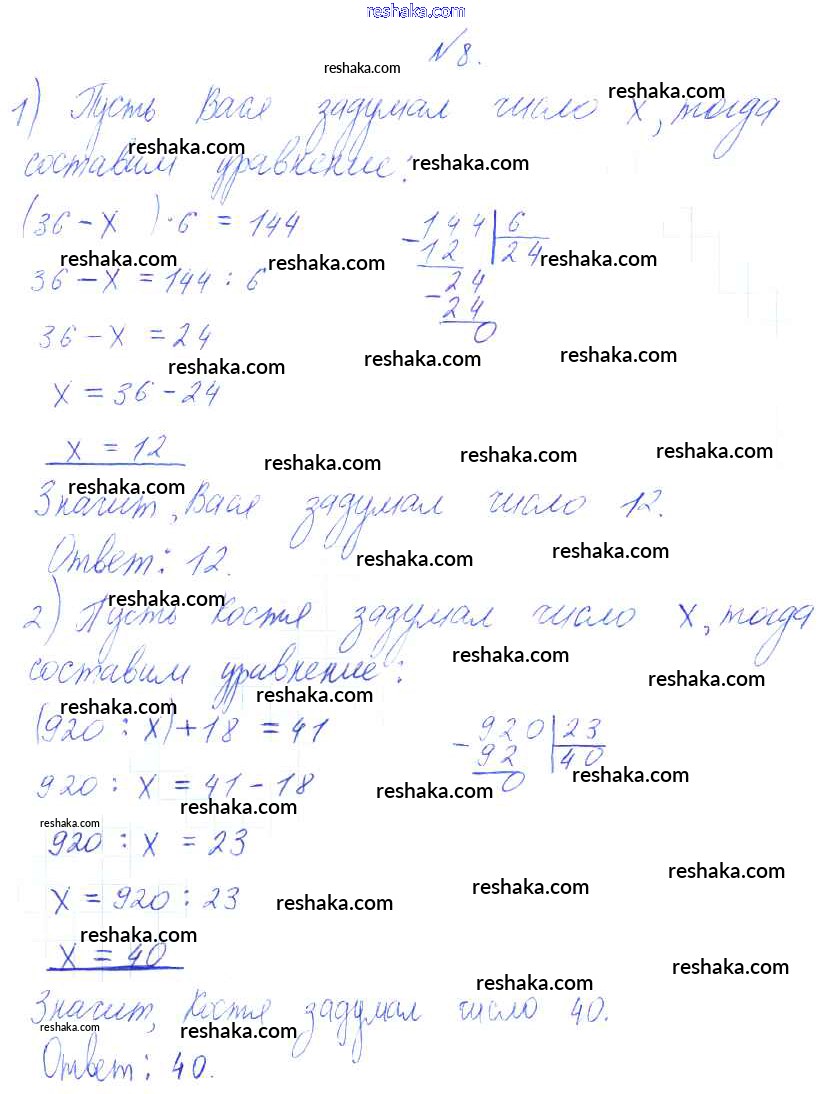 reshaka.com
№8.
reshaka.com
1) Пусть Вася задумал число x, тогда
reshaka.com
составим уравнение:
reshaka.com reshaka.com
(36 - x ) · 6 = 144
- 144 | 6
12 24
reshaka.com reshaka.com reshaka.com
36 - x = 144 : 6
24
- 24
0
36 - x = 24
reshaka.com reshaka.com reshaka.com
x = 36 - 24
x = 12
reshaka.com reshaka.com reshaka.com
reshaka.com
Значит, Вася задумал число 12.
Ответ: 12.
reshaka.com reshaka.com
reshaka.com
2) Пусть Костя задумал число x, тогда
reshaka.com
составим уравнение:
reshaka.com reshaka.com
reshaka.com
(920 : x) + 18 = 41
- 920 | 23
92 40
0
reshaka.com
920 : x = 41 - 18
reshaka.com reshaka.com
reshaka.com
920 : x = 23
reshaka.com reshaka.com
x = 920 : 23
reshaka.com
reshaka.com
x = 40
reshaka.com reshaka.com
Значит, Костя задумал число 40.
reshaka.com reshaka.com
Ответ: 40.